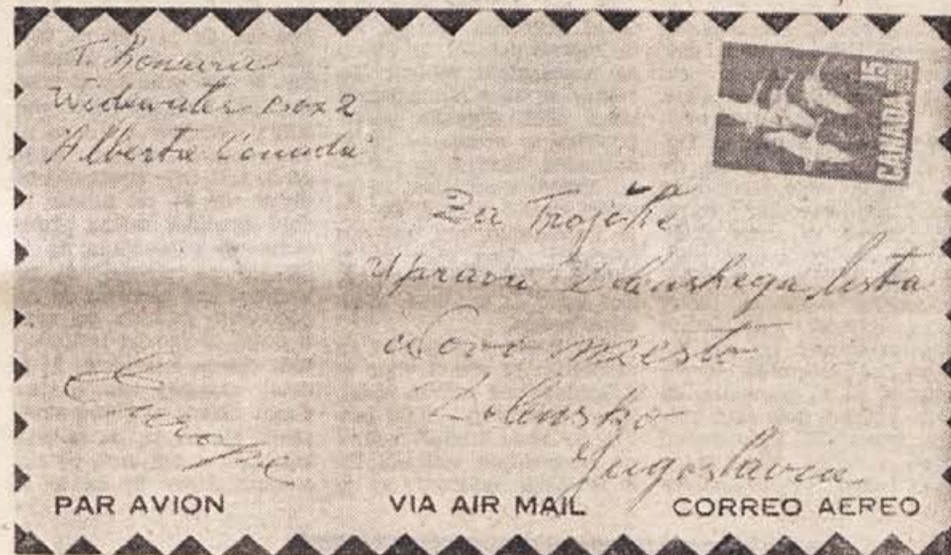 T.
Widewater Box 2
Alberta Canada
CANADA 15
Za Trojčke
Uprava Dolenskega lista
Novo mesto
Dolensko
Jugoslavia
Europe
PAR AVION VIA AIR MAIL CORREO AEREO